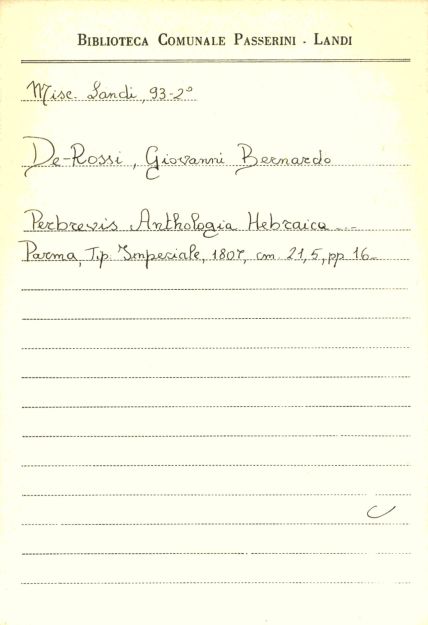 BIBLIOTECA COMUNALE PASSERINI - LANDI
Misc. Landi, 93-2°
De-Rossi, Giovanni Bernardo
Perbrevis Anthologia Hebraica ...
Parma, Tip. Imperiale, 1807, cm. 21,5, pp 16-